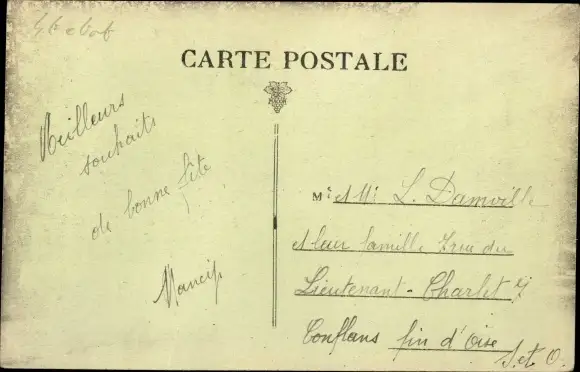 CARTE POSTALE
Meilleurs
souhaits
de bonne fête
Mancip
M: et Me L. Damville
et leur famille 7 rue du
Lieutenant - Charlet
Conflans fin d'Oise
S. et O.